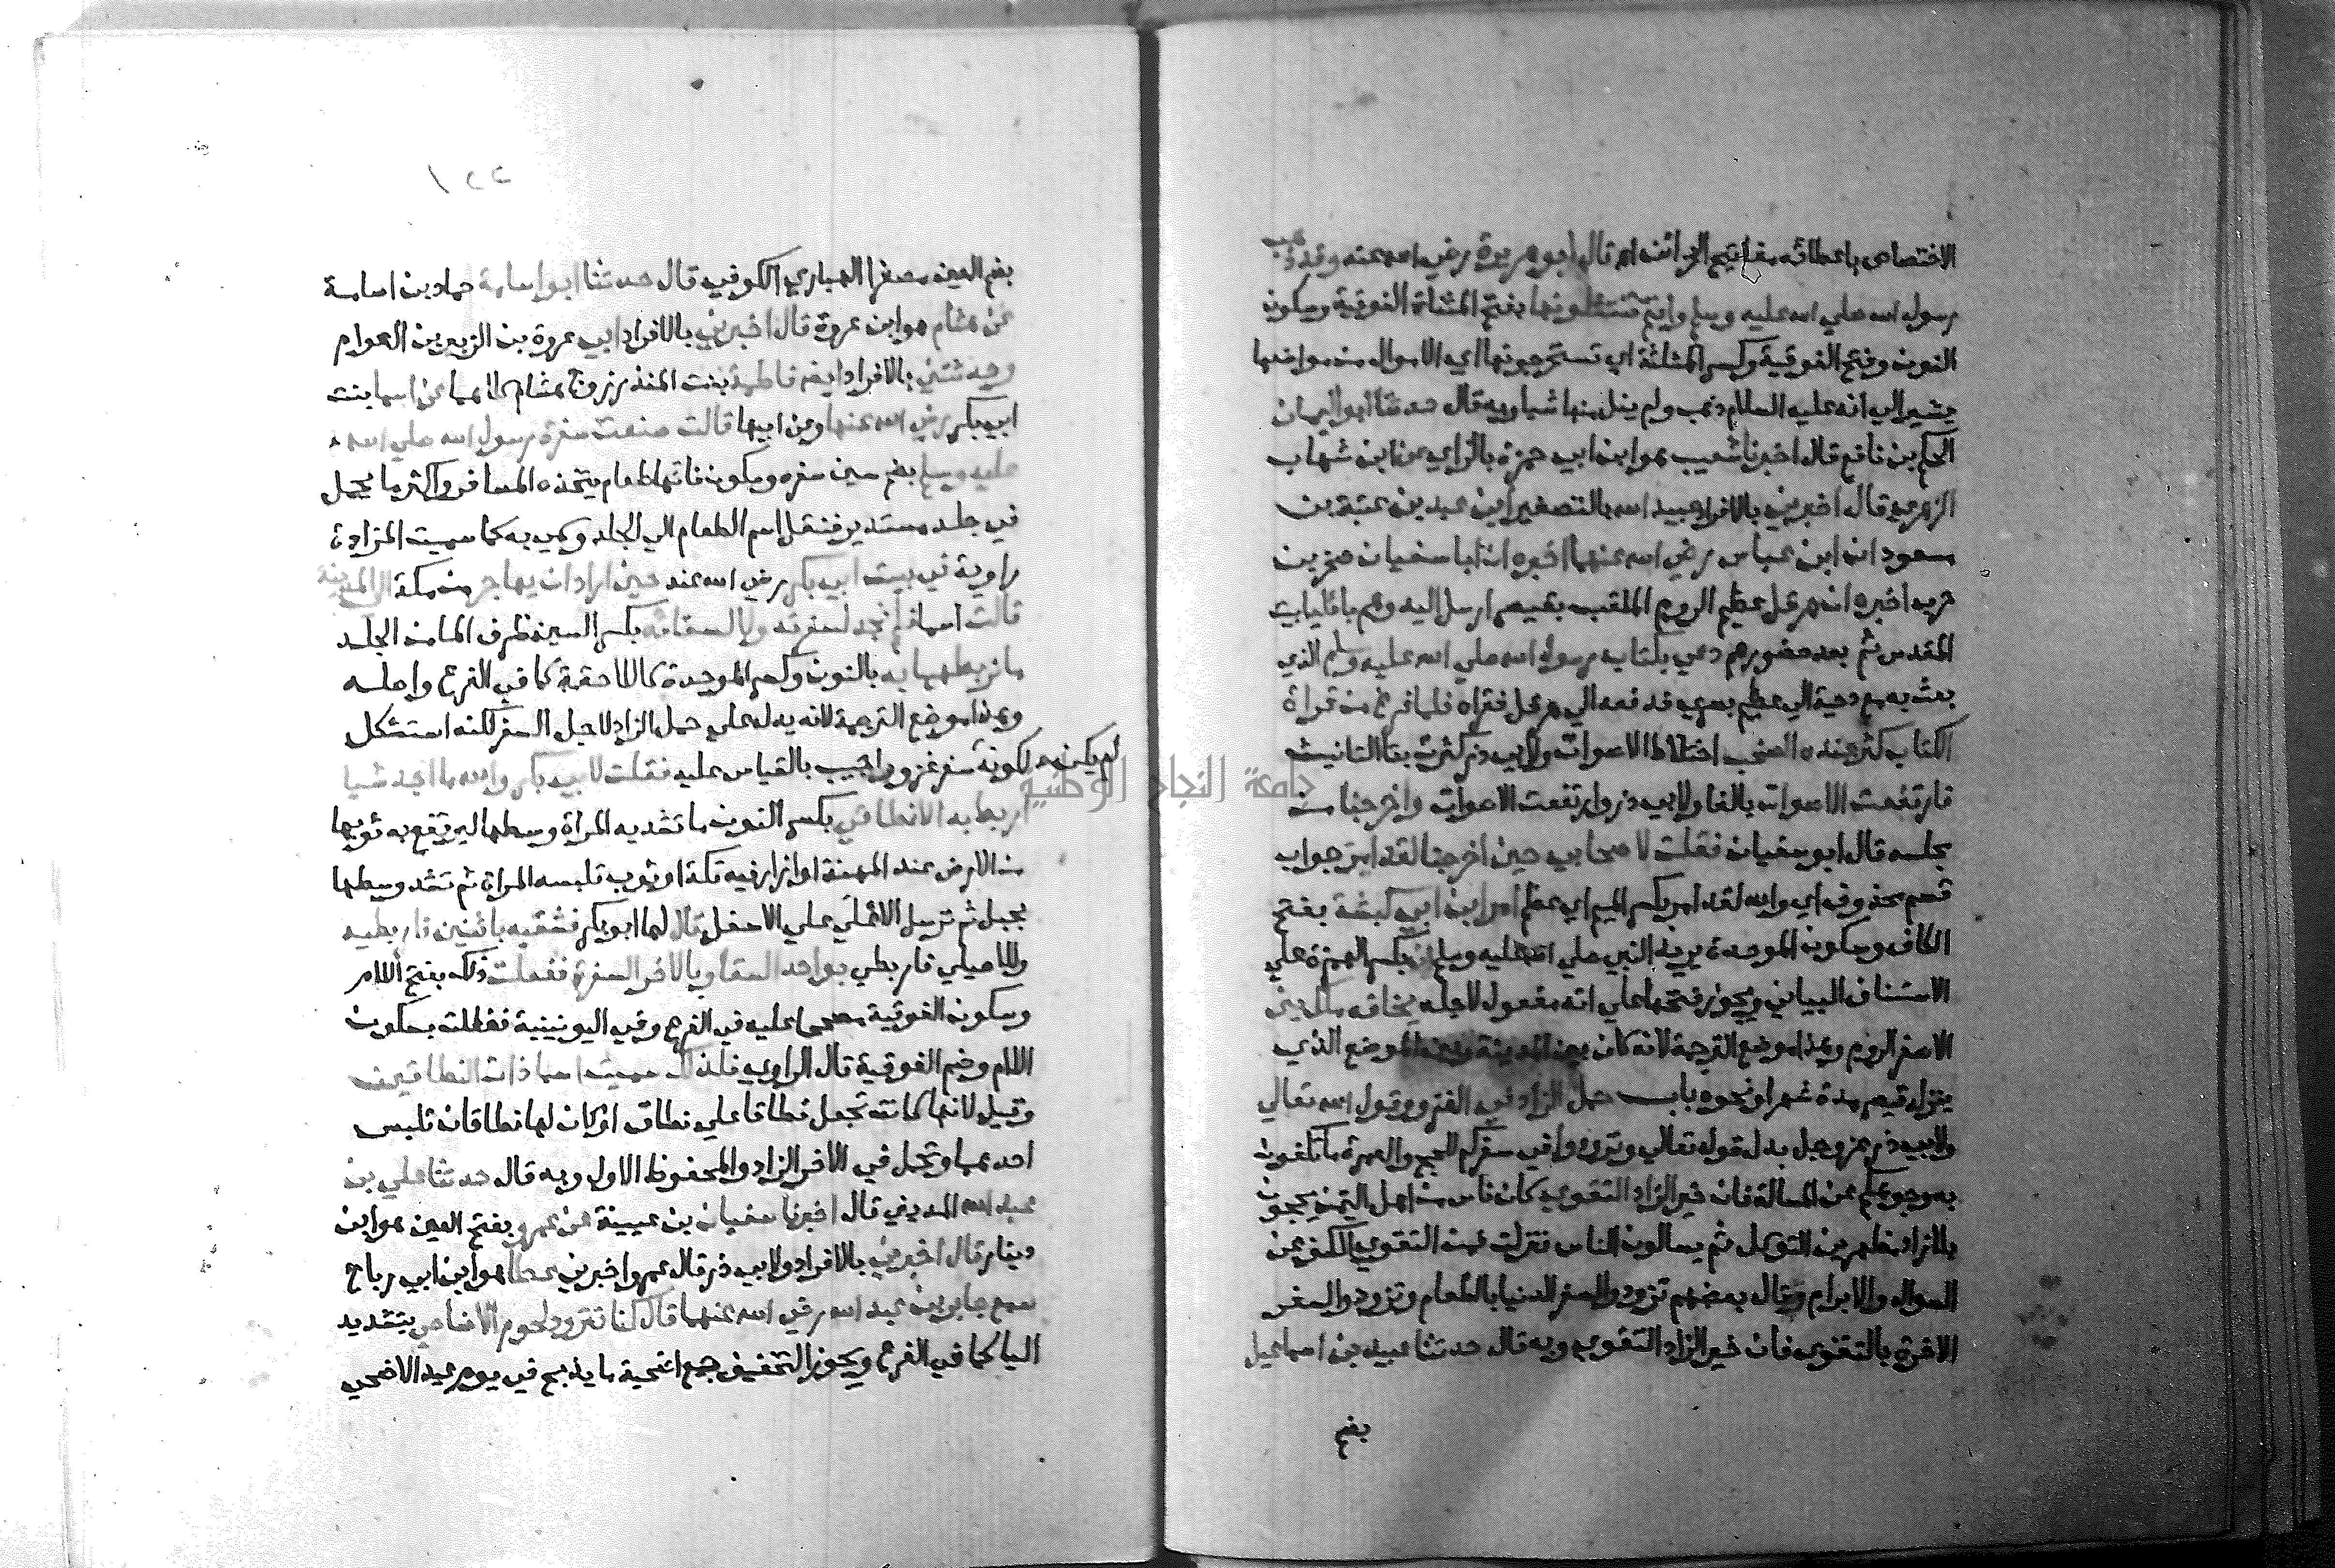 الاختصاص باعطائه مفاتيح الخزائن اه قال ابو هريرة رضي الله عنه وقد ذهب
رسول الله صلي الله عليه وسلم وانتم تنتثلونها بفتح المثناة الفوقية وسكون
النون وفتح الفوقية وكسر المثلثة اي تستخرجونها اي الاموال من مواضعها
يشير الي انه عليه السلام ذهب ولم ينل منها شيا وبه قال حدثنا ابو اليمان
الحكم بن نافع قال اخبرنا شعيب هو ابن ابي حمزة بالزاي عن ابن شهاب
الزهري قال اخبرني بالافراد عبيد الله بالتصغير ابن عبد بن عتبة بن
مسعود ان ابن عباس رضي الله عنهما اخبره ان ابا سفيان صخر بن
حرب اخبره ان هرقل عظيم الروم الملقب بقيصر ارسل اليه وهم بايليابيت
المقدس ثم بعد حضورهم دعي بكتاب رسول الله صلي الله عليه وسلم الذي
بعث به مع دحية الي عظيم بصري فدفعه الي هرقل فقراه فلما فرغ من قراة
الكتاب كثر عنده الصخب اختلاط الاصوات ولابي ذر كثرت بتا التانيث
فارتفعت الاصوات بالفا ولابي ذر وارتفعت الاصوات واخرجنا من
مجلسه قال ابو سفيان فقلت لاصحابي حين اخرجنا لقد امر جواب
قسم محذوف اي والله لقد امر بكسر الميم اي عظم امر ابن ابي كبشة بفتح
الكاف وسكون الموحدة يريد النبي صلي الله عليه وسلم انه بكسر الهمزة علي
الاستيناف البياني ويجوز فتحها علي انه مفعول لاجله يخافه ملك بني
الاصفر الروم وهذا موضع الترجمة لانه كان بين المدينة وبين الموضع الذي
ينزل قيصر مدة شهر او نحوه باب حمل الزاد في الغزو وقول الله تعالي
ولابي ذر عز وجل بدل قوله تعالي وتزودوا في سفركم للحج والعمرة ما تكفون
به وجوهكم عن المسالة فان خير الزاد التقوي كان ناس من اهل اليمن يحجون
بلا زاد مظهرين التوكل ثم يسالون الناس فنزلت فمن التقوي الكف عن
السوال والابرام وقال بعضهم تزودوا لسفر الدنيا بالطعام وتزودوا لسفر
الاخرة بالتقوي فان خير الزاد التقوي وبه قال حدثنا عبيد بن اسماعيل
بضم
بضم العين مصغرا الهباري الكوفي قال حدثنا ابو اسامة حماد بن اسامة
عن هشام هو ابن عروة قال اخبرني بالافراد ابي عروة بن الزبير بن العوام
وحدثتني بالافراد ايضا فاطمة بنت المنذر زوج هشام كلاهما عن اسما بنت
ابي بكر رضي الله عنها وعن ابيها قالت صنعت سفرة رسول الله صلي الله
عليه وسلم بضم سين سفره وسكون فائها طعام يتخذه المسافر واكثر ما يحمل
في جلد مستدير فنقل اسم الطعام الي الجلد وسمي به كما سميت المزادة
راوية في بيت ابي بكر رضي الله عنه حين اراد ان يهاجر من مكة الي المدينة
قالت اسما فلم نجد لسفرته ولا لسقائه بكسر السين ظرف الما من الجلد
ما نربطهما به بالنون وكسر الموحدة كاللاحقة كما في الفرع واصله
وهذا موضع الترجمة لانه يدل علي حمل الزاد لاجل السفر لكنه استشكل
لم يكن لكونه سفر غزو واجيب بالقياس عليه فقلت لابي بكر والله ما اجد شيا
اربط به الا نطاقي بكسر النون ما تشد به المراة وسطها ليرتفع به ثوبها
من الارض عند المهنة او ازار فيه تكة او ثوب تلبسه المراة ثم تشد وسطها
بحبل ثم ترسل الاعلي علي الاسفل قال لها ابو بكر فشقيه باثنين فاربطيه
وللاصيلي فاربطي بواحد السقا وبالاخر السفرة ففعلت ذلك بفتح اللام
وسكون الفوقية مصححا عليه في الفرع وفي اليونينية ففعلته بسكون
اللام وضم الفوقية قال الراوي فلذلك سميت اسما ذات النطاقين
وقيل لانها كانت تجعل نطاقا علي نطاق او كان لها نطاقان تلبس
احدهما وتحمل في الاخر الزاد والمحفوظ الاول وبه قال حدثنا علي بن
عبد الله المديني قال اخبرنا سفيان بن عيينة عن عمرو بفتح العين هو ابن
دينار قال اخبرني بالافراد ولابي ذر قال عمرو اخبرني عطا هو ابن ابي رباح
سمع جابر بن عبد الله رضي الله عنهما قال كنا نتزود لحوم الاضاحي بتشديد
اليا كما في الفرع ويجوز التخفيف جمع اضحية ما يذبح في يوم عيد الاضحي
جامعة النجاح الوطنية